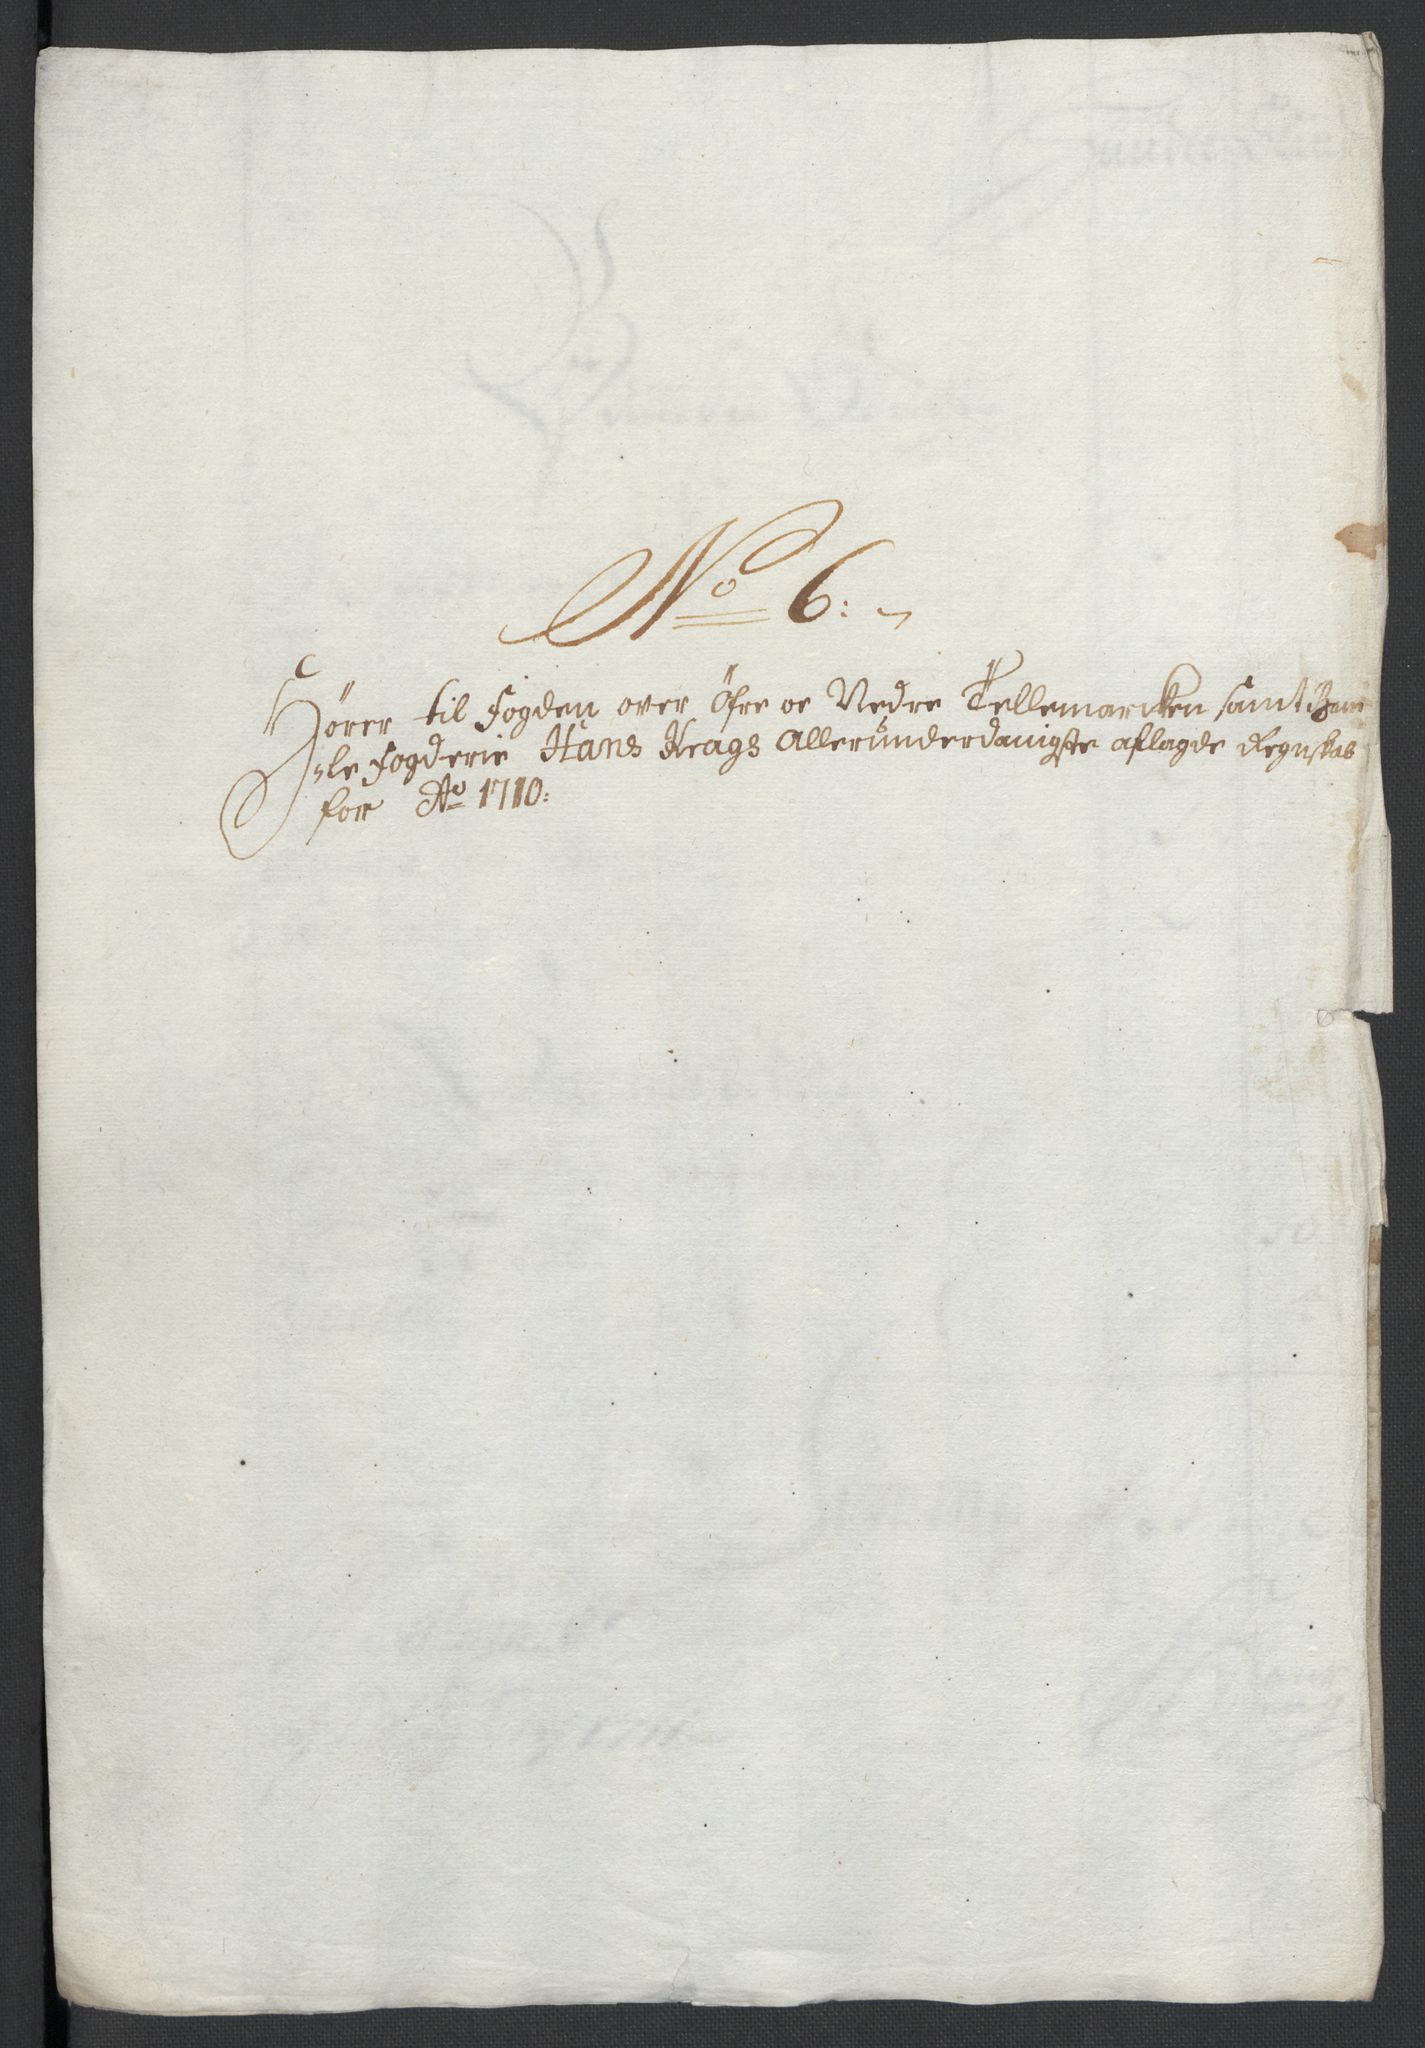 No 6:
Hörer til fogden over Öfre oc Nedre Tellemarcken samt Bam
ble fogderie Hans Krags Allerunderdanigste aflagde Regnskab
for Ao 1710: